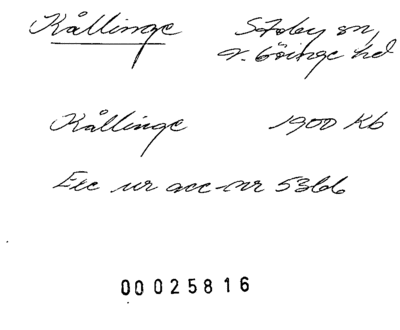 Kållinge Stoby sn,
V. Göinge hd
Kållinge 1900 Kb
Exc ur acc-nr 5366
00025816